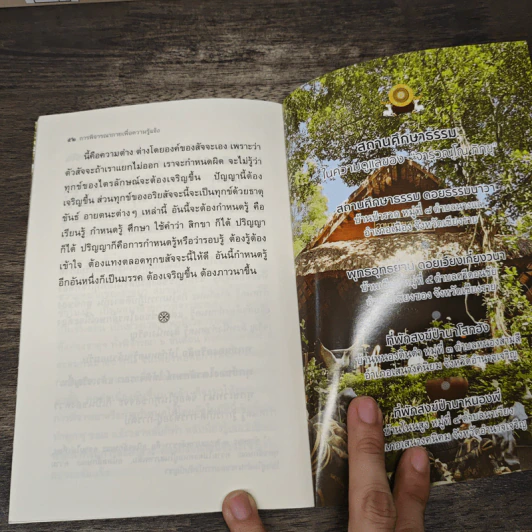 ๕๒ การพิจารณากายเพื่อความรู้แจ้ง
นี้คือความต่าง ต่างโดยองค์ของสัจจะเอง เพราะว่า
ตัวสัจจะถ้าเราแยกไม่ออก เราจะกำหนดผิด จะไม่รู้ว่า
ทุกข์ของไตรลักษณ์จะต้องเจริญขึ้น ปัญญานี้ต้อง
เจริญขึ้น ส่วนทุกข์ของอริยสัจจะนี้จะเป็นทุกข์ด้วยธาตุ
ขันธ์ อายตนะต่างๆ เหล่านี้ อันนี้จะต้องกำหนดรู้ คือ
เรียนรู้ กำหนดรู้ ศึกษา ใช้คำว่า สิกขา ก็ได้ ปริญญา
ก็ได้ ปริญญาก็คือการกำหนดรู้หรือว่ารอบรู้ ต้องรู้ต้อง
เข้าใจ ต้องแทงตลอดทุกขสัจจะนี้ให้ดี อันนี้กำหนดรู้
อีกอันหนึ่งก็เป็นมรรค ต้องเจริญขึ้น ต้องภาวนาขึ้น
สถานศึกษาธรรม
ในความดูแลของ
สถานศึกษาธรรม ดอยธรรมนาวา
หมู่ที่ ๘
จังหวัดเชียงราย
พุทธอุทยาน ดอยเวียงเกี๋ยงวนา
หมู่ที่ ๕
จังหวัดเชียงราย
ที่พักสงฆ์ป่ามาโสกฮัง
หมู่ที่ ๓
ที่พักสงฆ์ป่านาหนองพี่
บ้านโนนสูง หมู่ที่ ๔